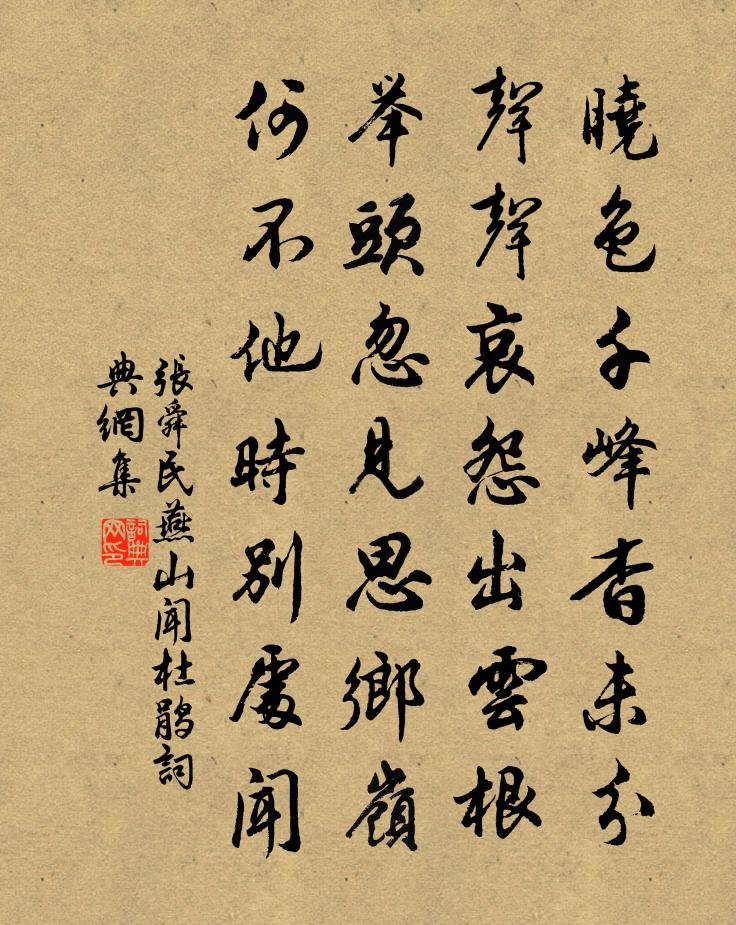 曉色千峰杳未分
聲聲哀怨出雲根
举頭忽見思鄉嶺
何不他時別處聞
張舜民燕山闻杜鹃詞
典網集
詞典网印